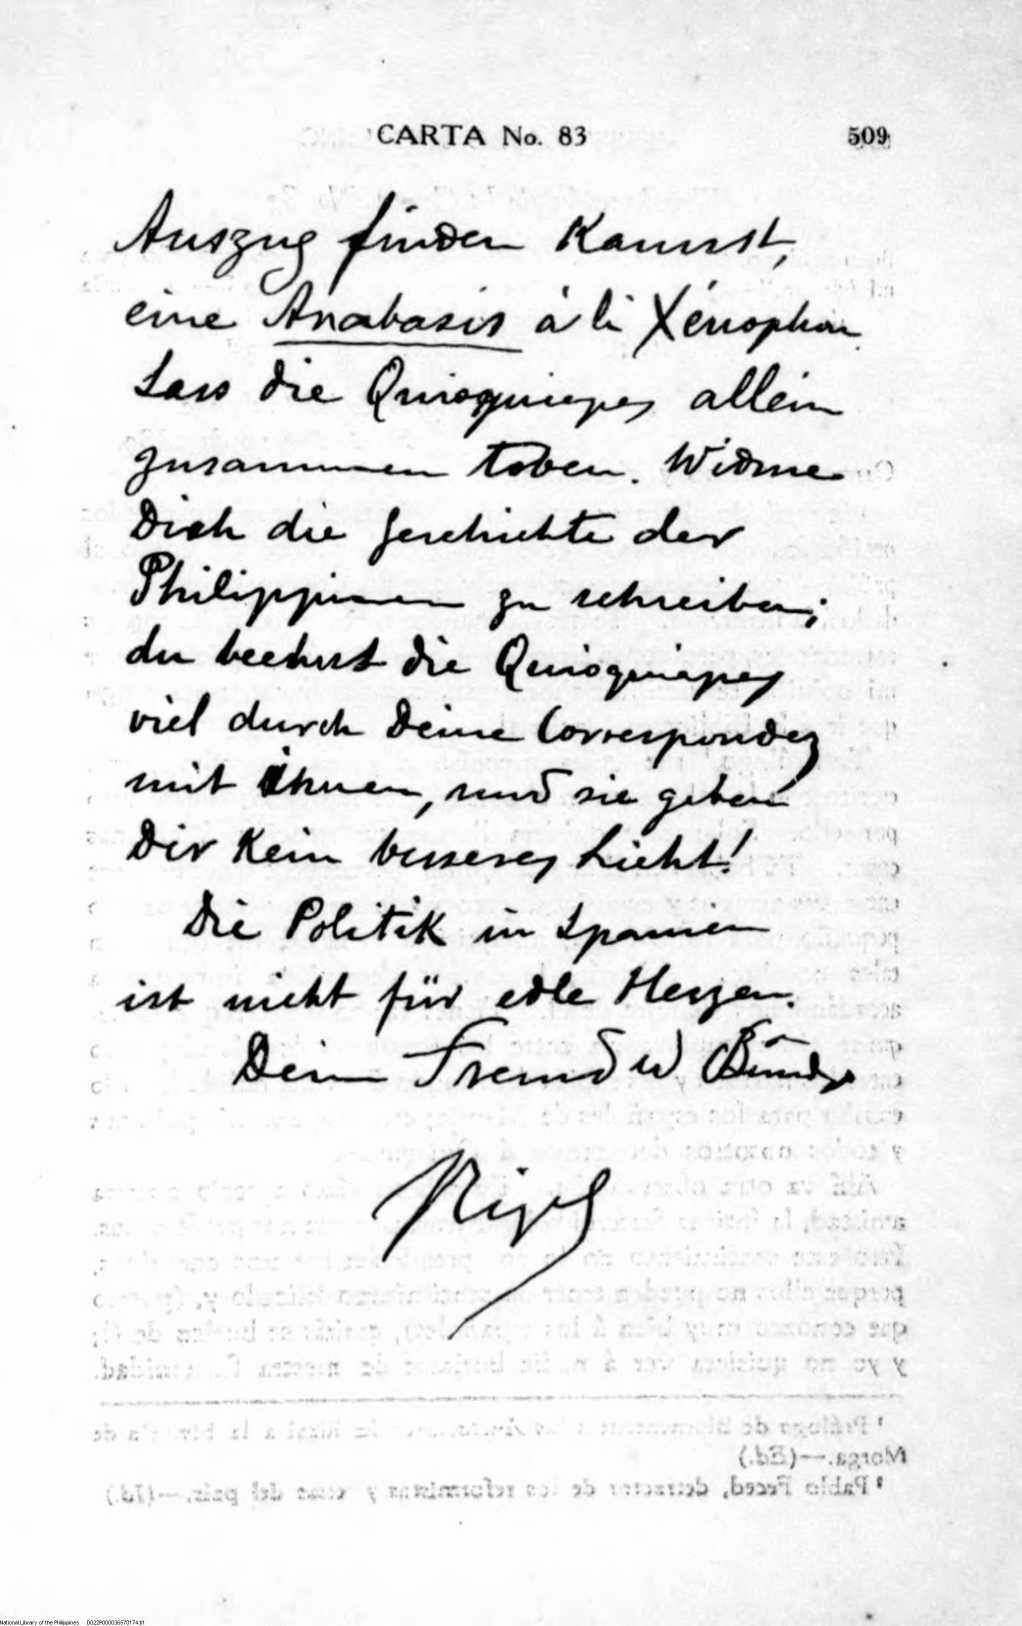 CARTA No. 83 509
Auszug finden Kannst,
eine Anabasis à la Xénophon
Lass die Quioquiapes allein
zusammen toben. Widme
Dich die Geschichte der
Philippinen zu schreiben;
du beehrst die Quioquiapes
viel durch Deine Correspondez
mit ihnen, und sie geben
Dir Kein besseres Licht!
Die Politik in Spanien
ist nicht für edle Herzen.
Dein Freund u Bruder
Rizal
National Library of the Philippines